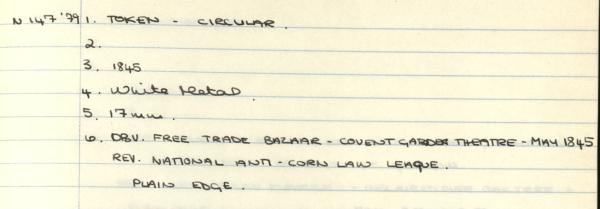 N 147 '79 1. TOKEN - CIRCULAR.
2.
3. 1845
4. White Metal.
5. 17mm.
6. OBV. FREE TRADE BAZAAR - COVENT GARDEN THEATRE - MAY 1845
REV. NATIONAL ANTI-CORN LAW LEAGUE.
PLAIN EDGE.